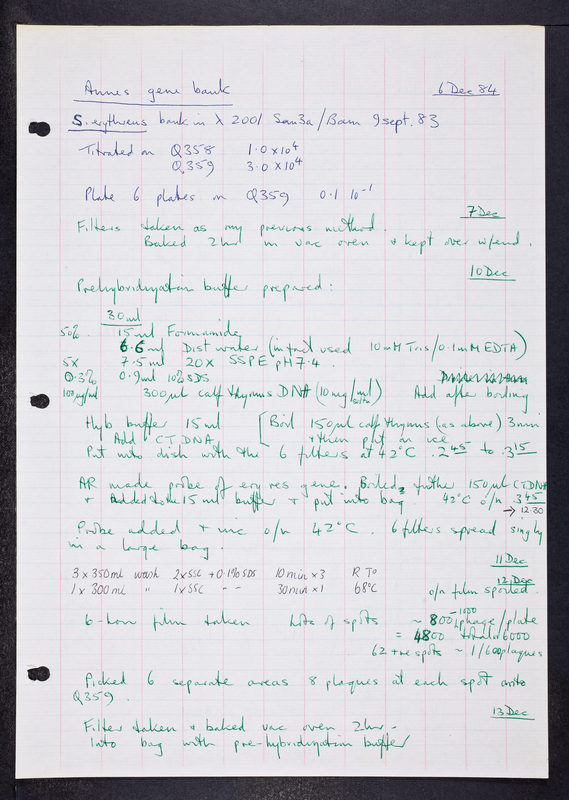 Annes gene bank 6 Dec 84
S. erythreus bank in λ 2001 Sau3a/Bam 9 sept. 83
Titrated on Q358 1.0 x 10⁴
Q359 3.0 x 10⁴
Plate 6 plates on Q359 0.1 10⁻¹
7 Dec
Filters taken as my previous method.
Baked 2hr in vac oven & kept over w/end.
10 Dec
Prehybridization buffer prepared:
30 ml
50% 15 ml Formamide
6.6 ml Dist water (in fact used 10 mM Tris/0.1mM EDTA)
5X 7.5 ml 20X SSPE pH 7.4.
0.3% 0.9 ml 10% SDS
100 µg/ml 300 µl calf thymus DNA (10 mg/ml) Add after boiling
Hyb buffer 15 ml [Boil 150 µl calf thymus (as above) 3 min
Add CT DNA & then put on ice
Put into dish with the 6 filters at 42°C. 2⁴⁵ to 3¹⁵
AR made probe of ery res gene. Boiled & further 150 µl CT DNA
& Added to the 15 ml buffer & put into bag. 42°C o/n 3⁴⁵
→ 12.30
Probe added & inc o/n 42°C. 6 filters spread singly
in a large bag.
11 Dec
3 x 350 ml wash 2xSSC + 0.1% SDS 10 min x 3 R T°
12 Dec
1 x 300 ml " 1xSSC " " 30 min x 1 68°C o/n film spoiled.
6-hour film taken Lots of spots ~ 800-1000 phage/plate
= 4800 total 6000
62 +ve spots ~ 1/600 plaques
Picked 6 separate areas 8 plaques at each spot onto
Q359.
13 Dec
Filter taken & baked vac oven 2hr -
Into bag with pre-hybridization buffer